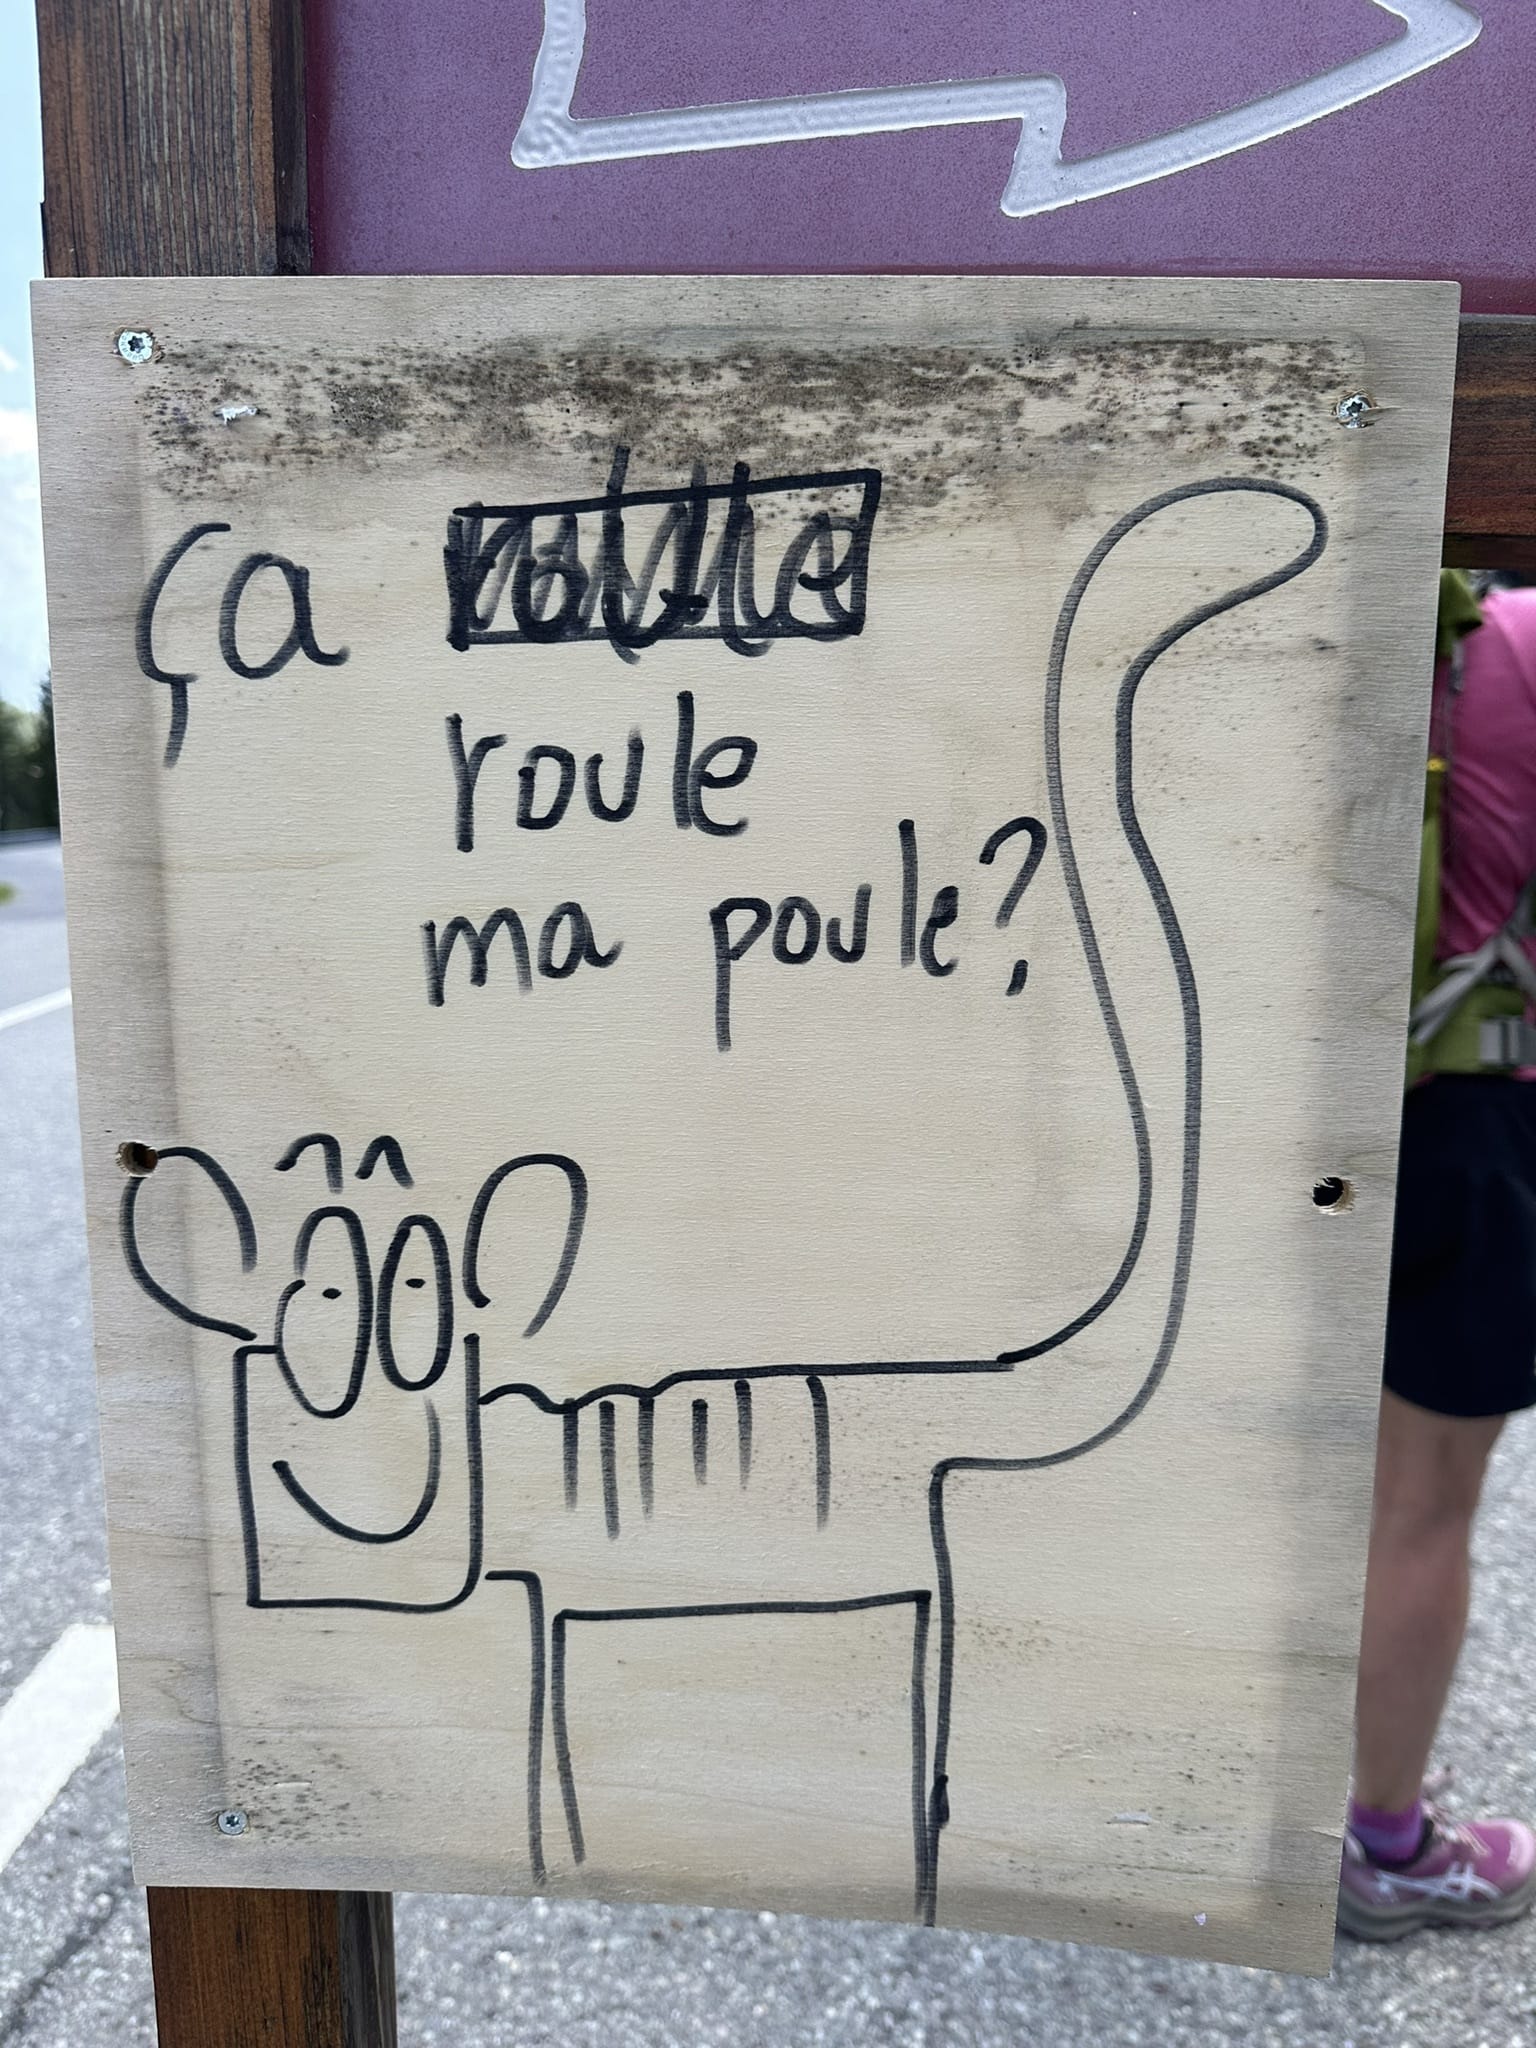 ça
roule
ma poule?